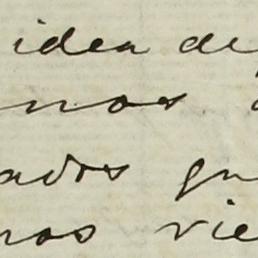 idea de
nos
ados que
nos vie